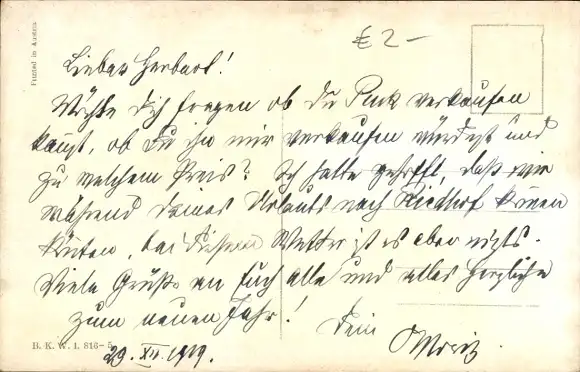 Printed in Austria
€ 2-
Lieber Herbert!
Möchte Dich fragen ob du Puck verkaufen
kannst, ob Du ihn mir verkaufen würdest und
zu welchem Preis? Ich hatte gehofft, daß wir
während deines Urlaubs nach Riedhof
bei diesem Wetter ist es aber nichts.
Viele Grüße an Euch alle und alles Herzliche
zum neuen Jahr! Dein Moriz
B. K. W. I. 816-5
29. XII. 1919.